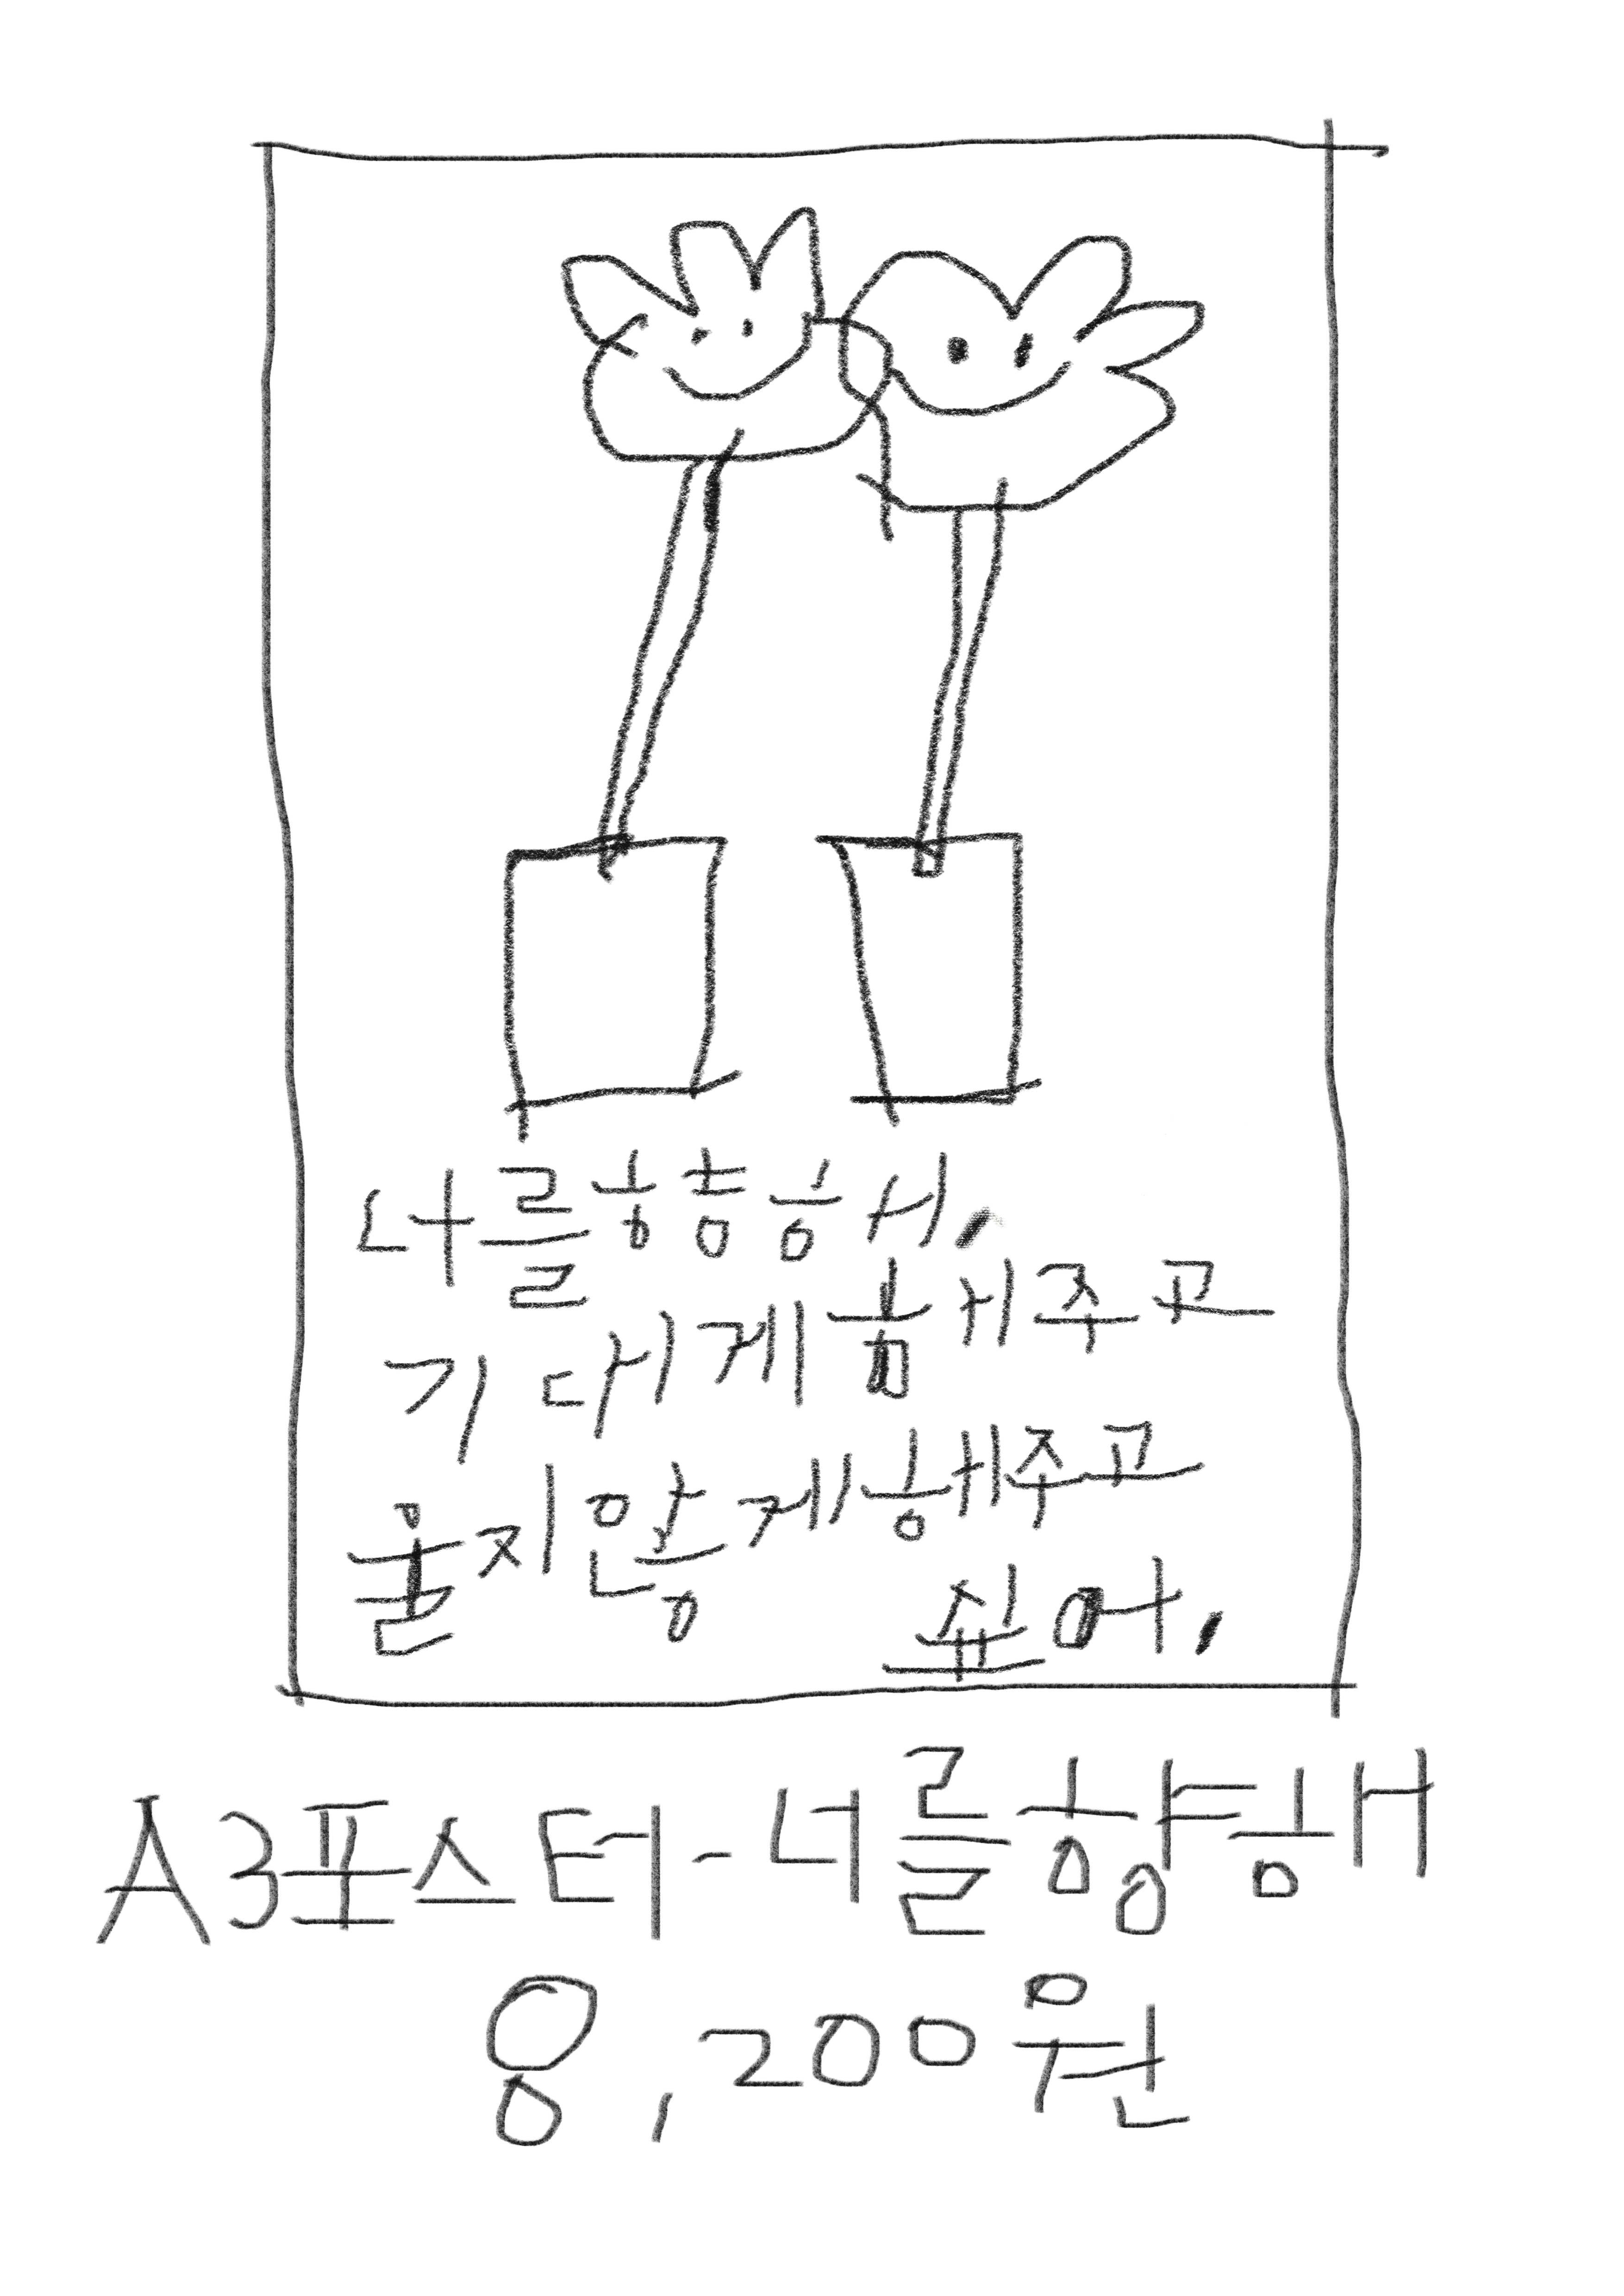 나를
기대게 해주고
울지 않게 해주고
싶어.
A3포스터-너를향해
8,200원